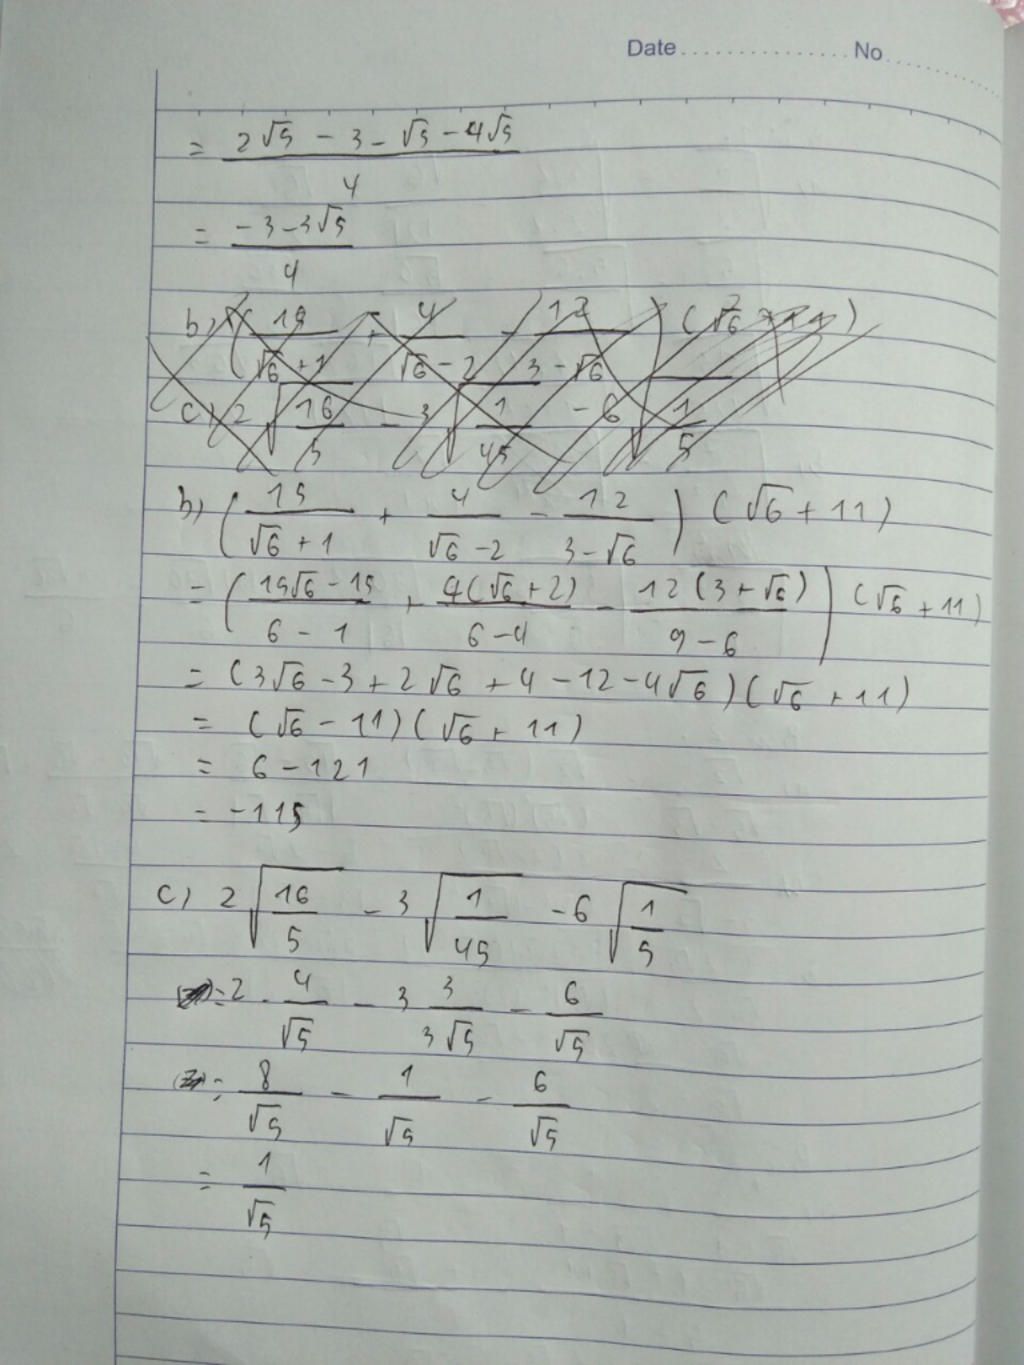 Date.................No.............
= (2√5 - 3 - √5 - 4√5)/4
= (-3-3√5)/4
b) (15/(√6+1) + 4/(√6-2) - 12/(3-√6)) (√6 + 11)
c) 2√(16/5) - 3√(1/45) - 6√(1/5)
b) (15/(√6+1) + 4/(√6-2) - 12/(3-√6)) (√6 + 11)
= ((15√6-15)/(6-1) + 4(√6+2)/(6-4) - 12(3+√6)/(9-6)) (√6 + 11)
= (3√6 - 3 + 2√6 + 4 - 12 - 4√6)(√6 + 11)
= (√6 - 11)(√6 + 11)
= 6 - 121
= -115
c) 2√(16/5) - 3√(1/45) - 6√(1/5)
= 2 . 4/√5 - 3 3/(3√5) - 6/√5
= 8/√5 - 1/√5 - 6/√5
= 1/√5